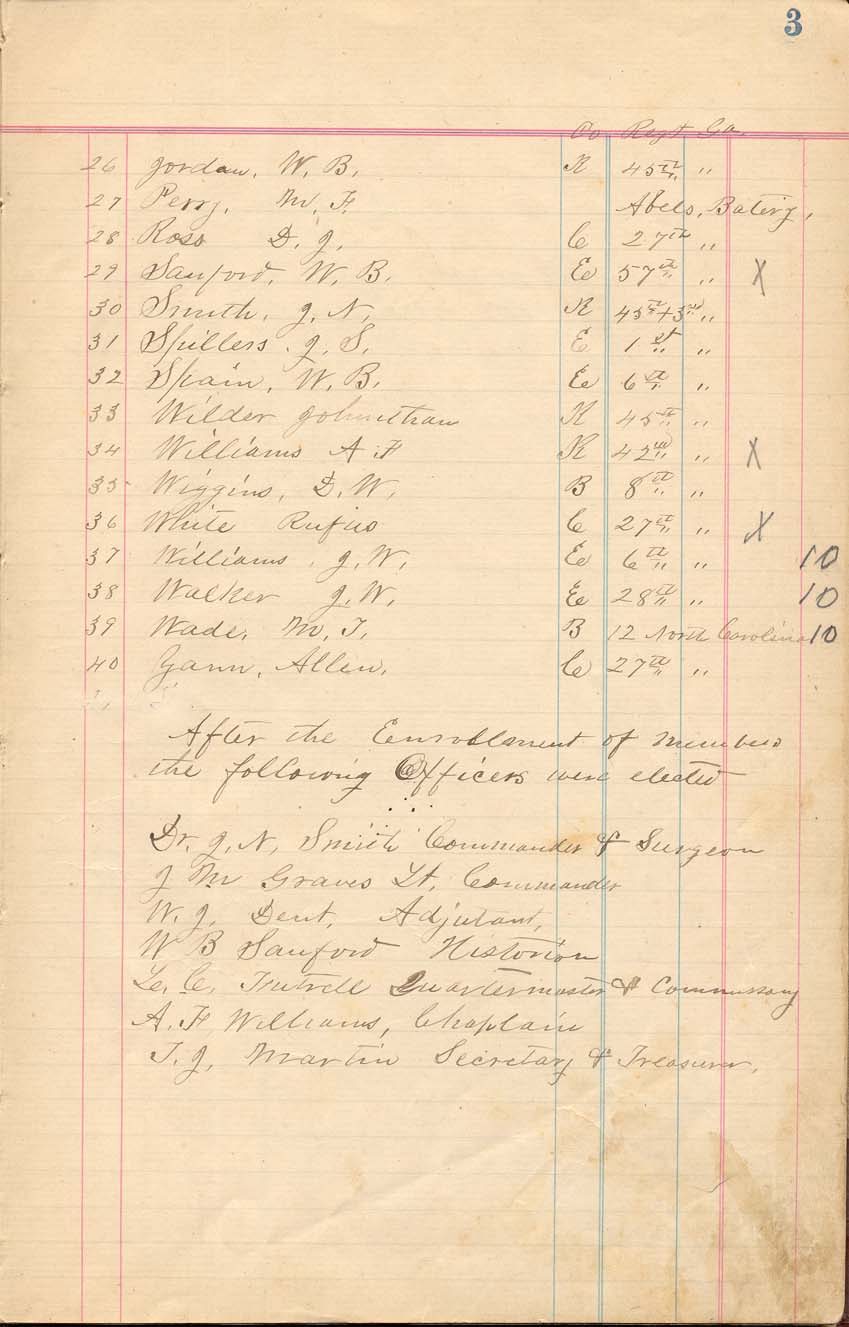 3
Co Regt Ga
26 Jordan, W. B. K 45th "
27 Perry, M. F. Abels, Batery,
28 Ross D. J. C 27th "
29 Sanford, W. B. E 57th " X
30 Smith, J. N. K 45th + 3rd "
31 Spillers J. S. E 1st "
32 Spain, W. B. E 6th "
33 Wilder Johnithan K 45th "
34 Williams A F K 42nd " X
35 Wiggins, D. W. B 8th "
36 White Rufus C 27th " X
37 Williams, J. W. E 6th " 10
38 Walker J. W. E 28th " 10
39 Wade, M. T. B 12 North Carolina 10
40 Gann, Allen, C 27th "
After the Enrollment of members
the following Officers were elected
Dr. J. N. Smith Commander & Surgeon
J M Graves Lt. Commander
W. J. Dent, Adjutant,
W B Sanford Historian
L. C. Futrell Quartermaster & Commissary
A. F Williams, Chaplain
T. J. Martin Secretary & Treasurer,